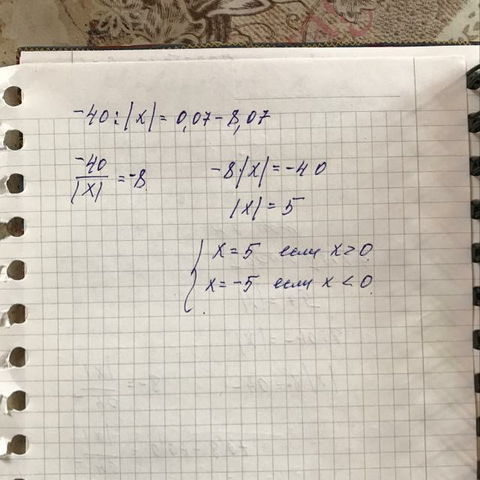 -40:|x| = 0,07-8,07
-40/|x| = -8 -8|x| = -40
|x| = 5
x = 5 если x > 0
x = -5 если x < 0